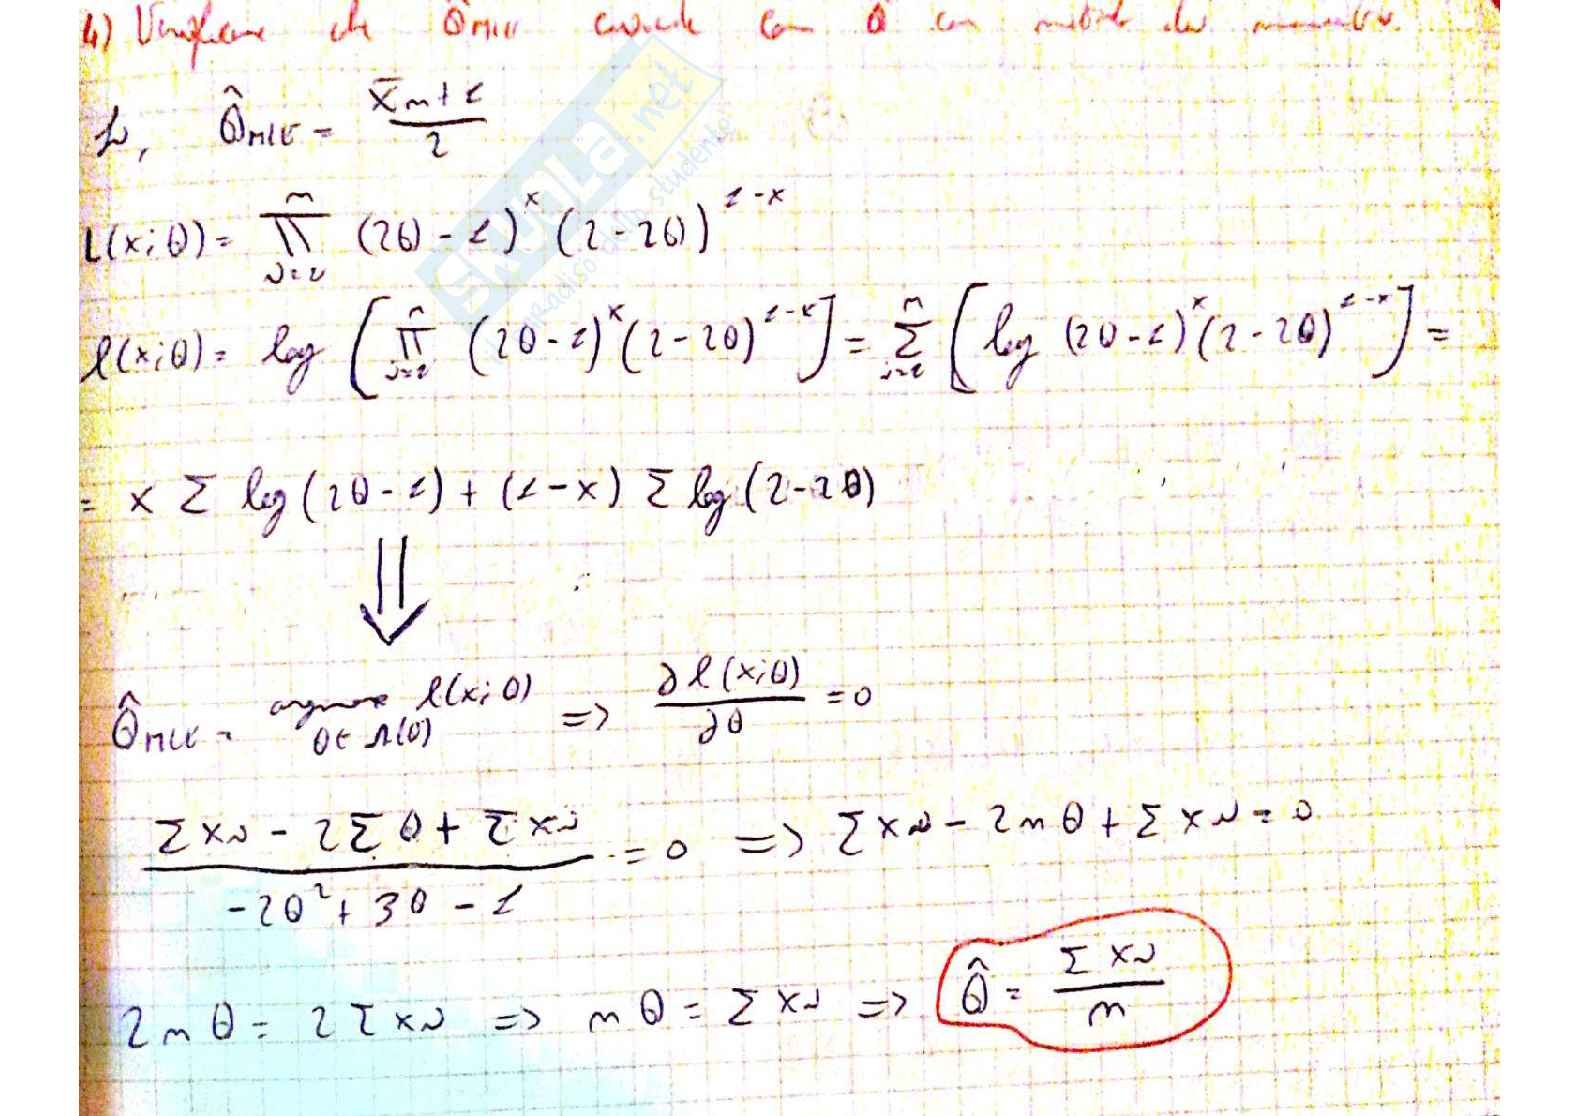 4) Verificare che θ̂MLE coincide con θ̂ con metodo dei momenti.
θ̂MLE = (x̄n + 1)/2
L(x;θ) = ∏ⁿᵢ₌₁ (2θ - 1)^x (2 - 2θ)^(1-x)
l(x;θ) = log [∏ⁿᵢ₌₁ (2θ - 1)^x (2 - 2θ)^(1-x)] = Σⁿᵢ₌₁ [log (2θ - 1)^x (2 - 2θ)^(1-x)] =
= x Σ log (2θ - 1) + (1 - x) Σ log (2 - 2θ)
⇓
θ̂MLE = argmax l(x;θ) θ∈Λ(θ) => ∂l(x;θ)/∂θ = 0
(Σxi - 2Σθ + Σxi)/(-2θ² + 3θ - 1) = 0 => Σxi - 2nθ + Σxi = 0
2nθ = 2Σxi => nθ = Σxi => θ̂ = Σxi/n
SKUOLA.net
paradiso dello studente